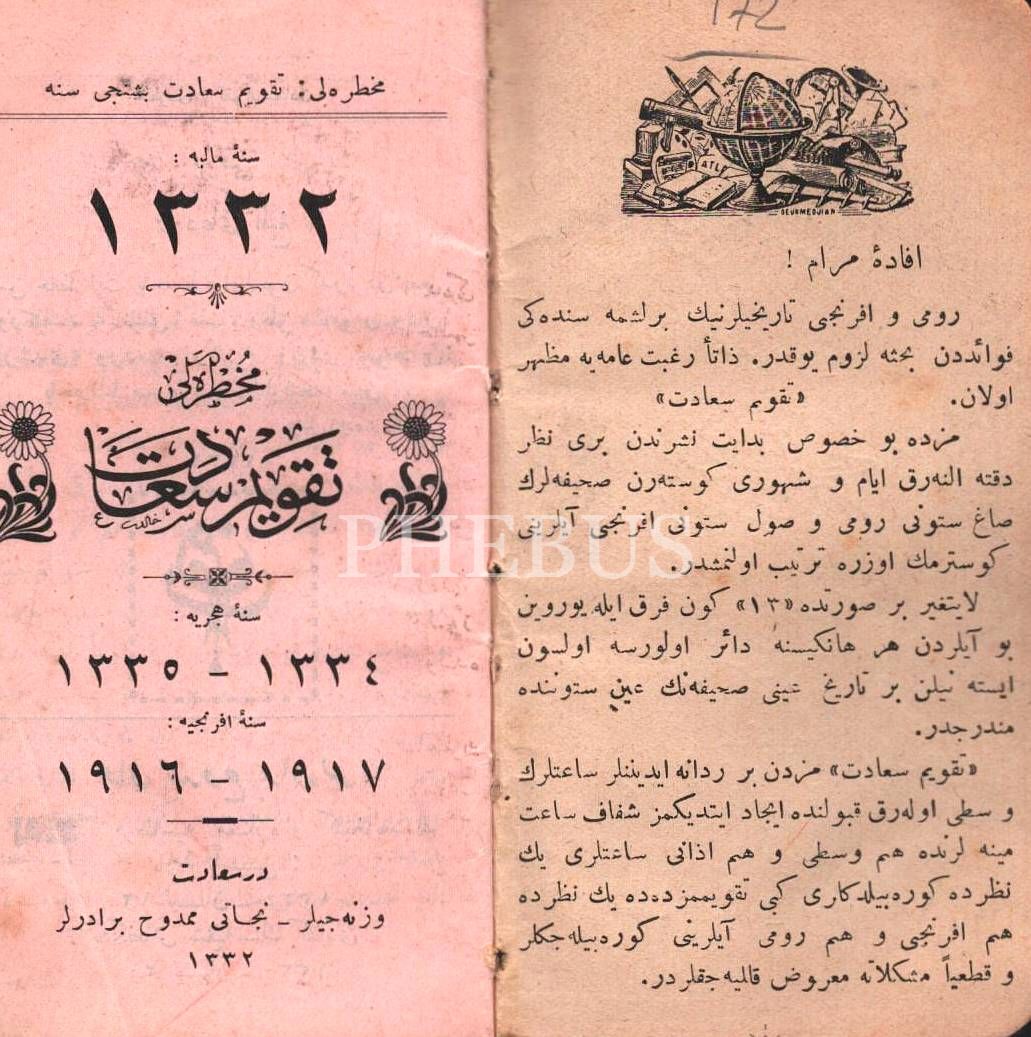 مخطره‌لی: تقویم سعادت بشنجی سنه
سنهٔ مالیه :
١٣٣٢
مخطره‌لی
تقویم سعادت
سنهٔ هجریه :
١٣٣٤ – ١٣٣٥
سنهٔ افرنجیه :
١٩١٧ – ١٩١٦
درسعادت
وزنه‌جیلر – نجاتی ممدوح برادرلر
١٣٣٢
172
ATLA
DEVRMEDJIAN
افادهٔ مرام !
رومی و افرنجی تاریخیلرنیك برلشمه سنده‌کی
فوائددن بحثه لزوم یوقدر. ذاتاً رغبت عامه‌یه مظهر
اولان. «تقویم سعادت»
مزده بو خصوص بدایت نشرندن بری نظر
دقته النه‌رق ایام و شهوری کوسته‌رن صحیفه‌لرك
صاغ ستونی رومی و صول ستونی افرنجی آیلرینی
کوسترمك اوزره ترتیب اولنمشدر.
لایتغیر بر صورتده «١٣» کون فرق ایله یوروین
بو آیلردن هر هانکیسنه دائر اولورسه اولسون
ایسته نیلن بر تاریخ عینی صحیفه‌نك عین ستوننده
مندرجدر.
«تقویم سعادت» مزدن بر ردانه ایدیننلر ساعتلرك
و سطی اوله‌رق قبولنده ایجاد ایتدیکمز شفاف ساعت
مینه لرنده هم وسطی و هم اذانی ساعتلری یك
نظرده کوره‌بیلدکاری کبی تقویممزده‌ده یك نظرده
هم افرنجی و هم رومی آیلرینی کوره‌بیله‌جکلر
و قطعیاً مشکلاته معروض قالمیه‌جقلردر.
PHEBUS